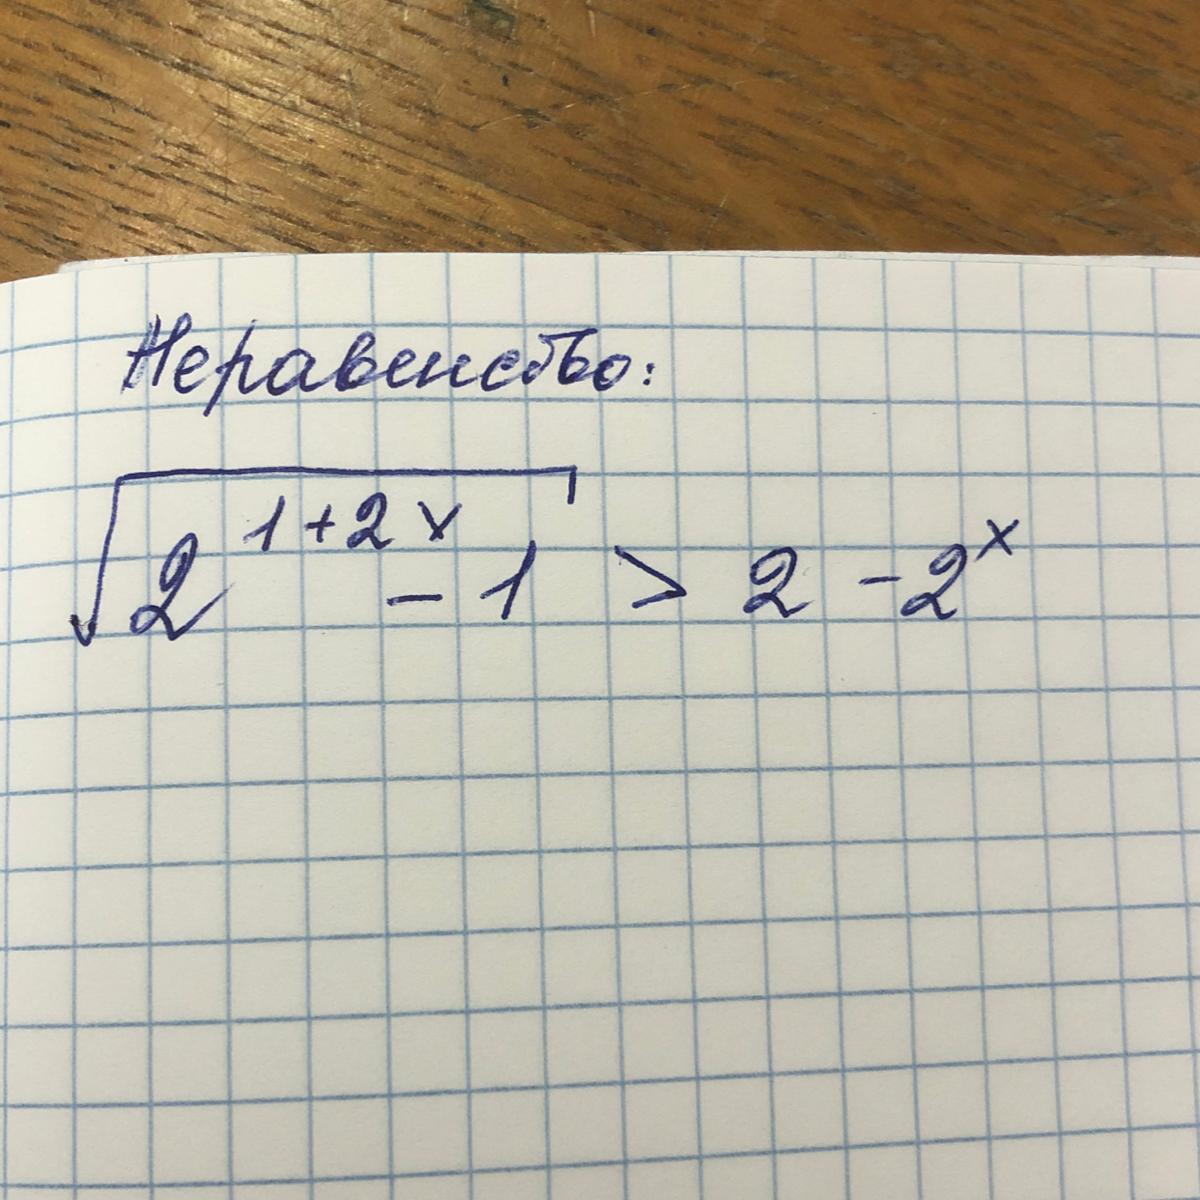 Неравенство:
√(2^(1+2x) - 1) > 2 - 2^x